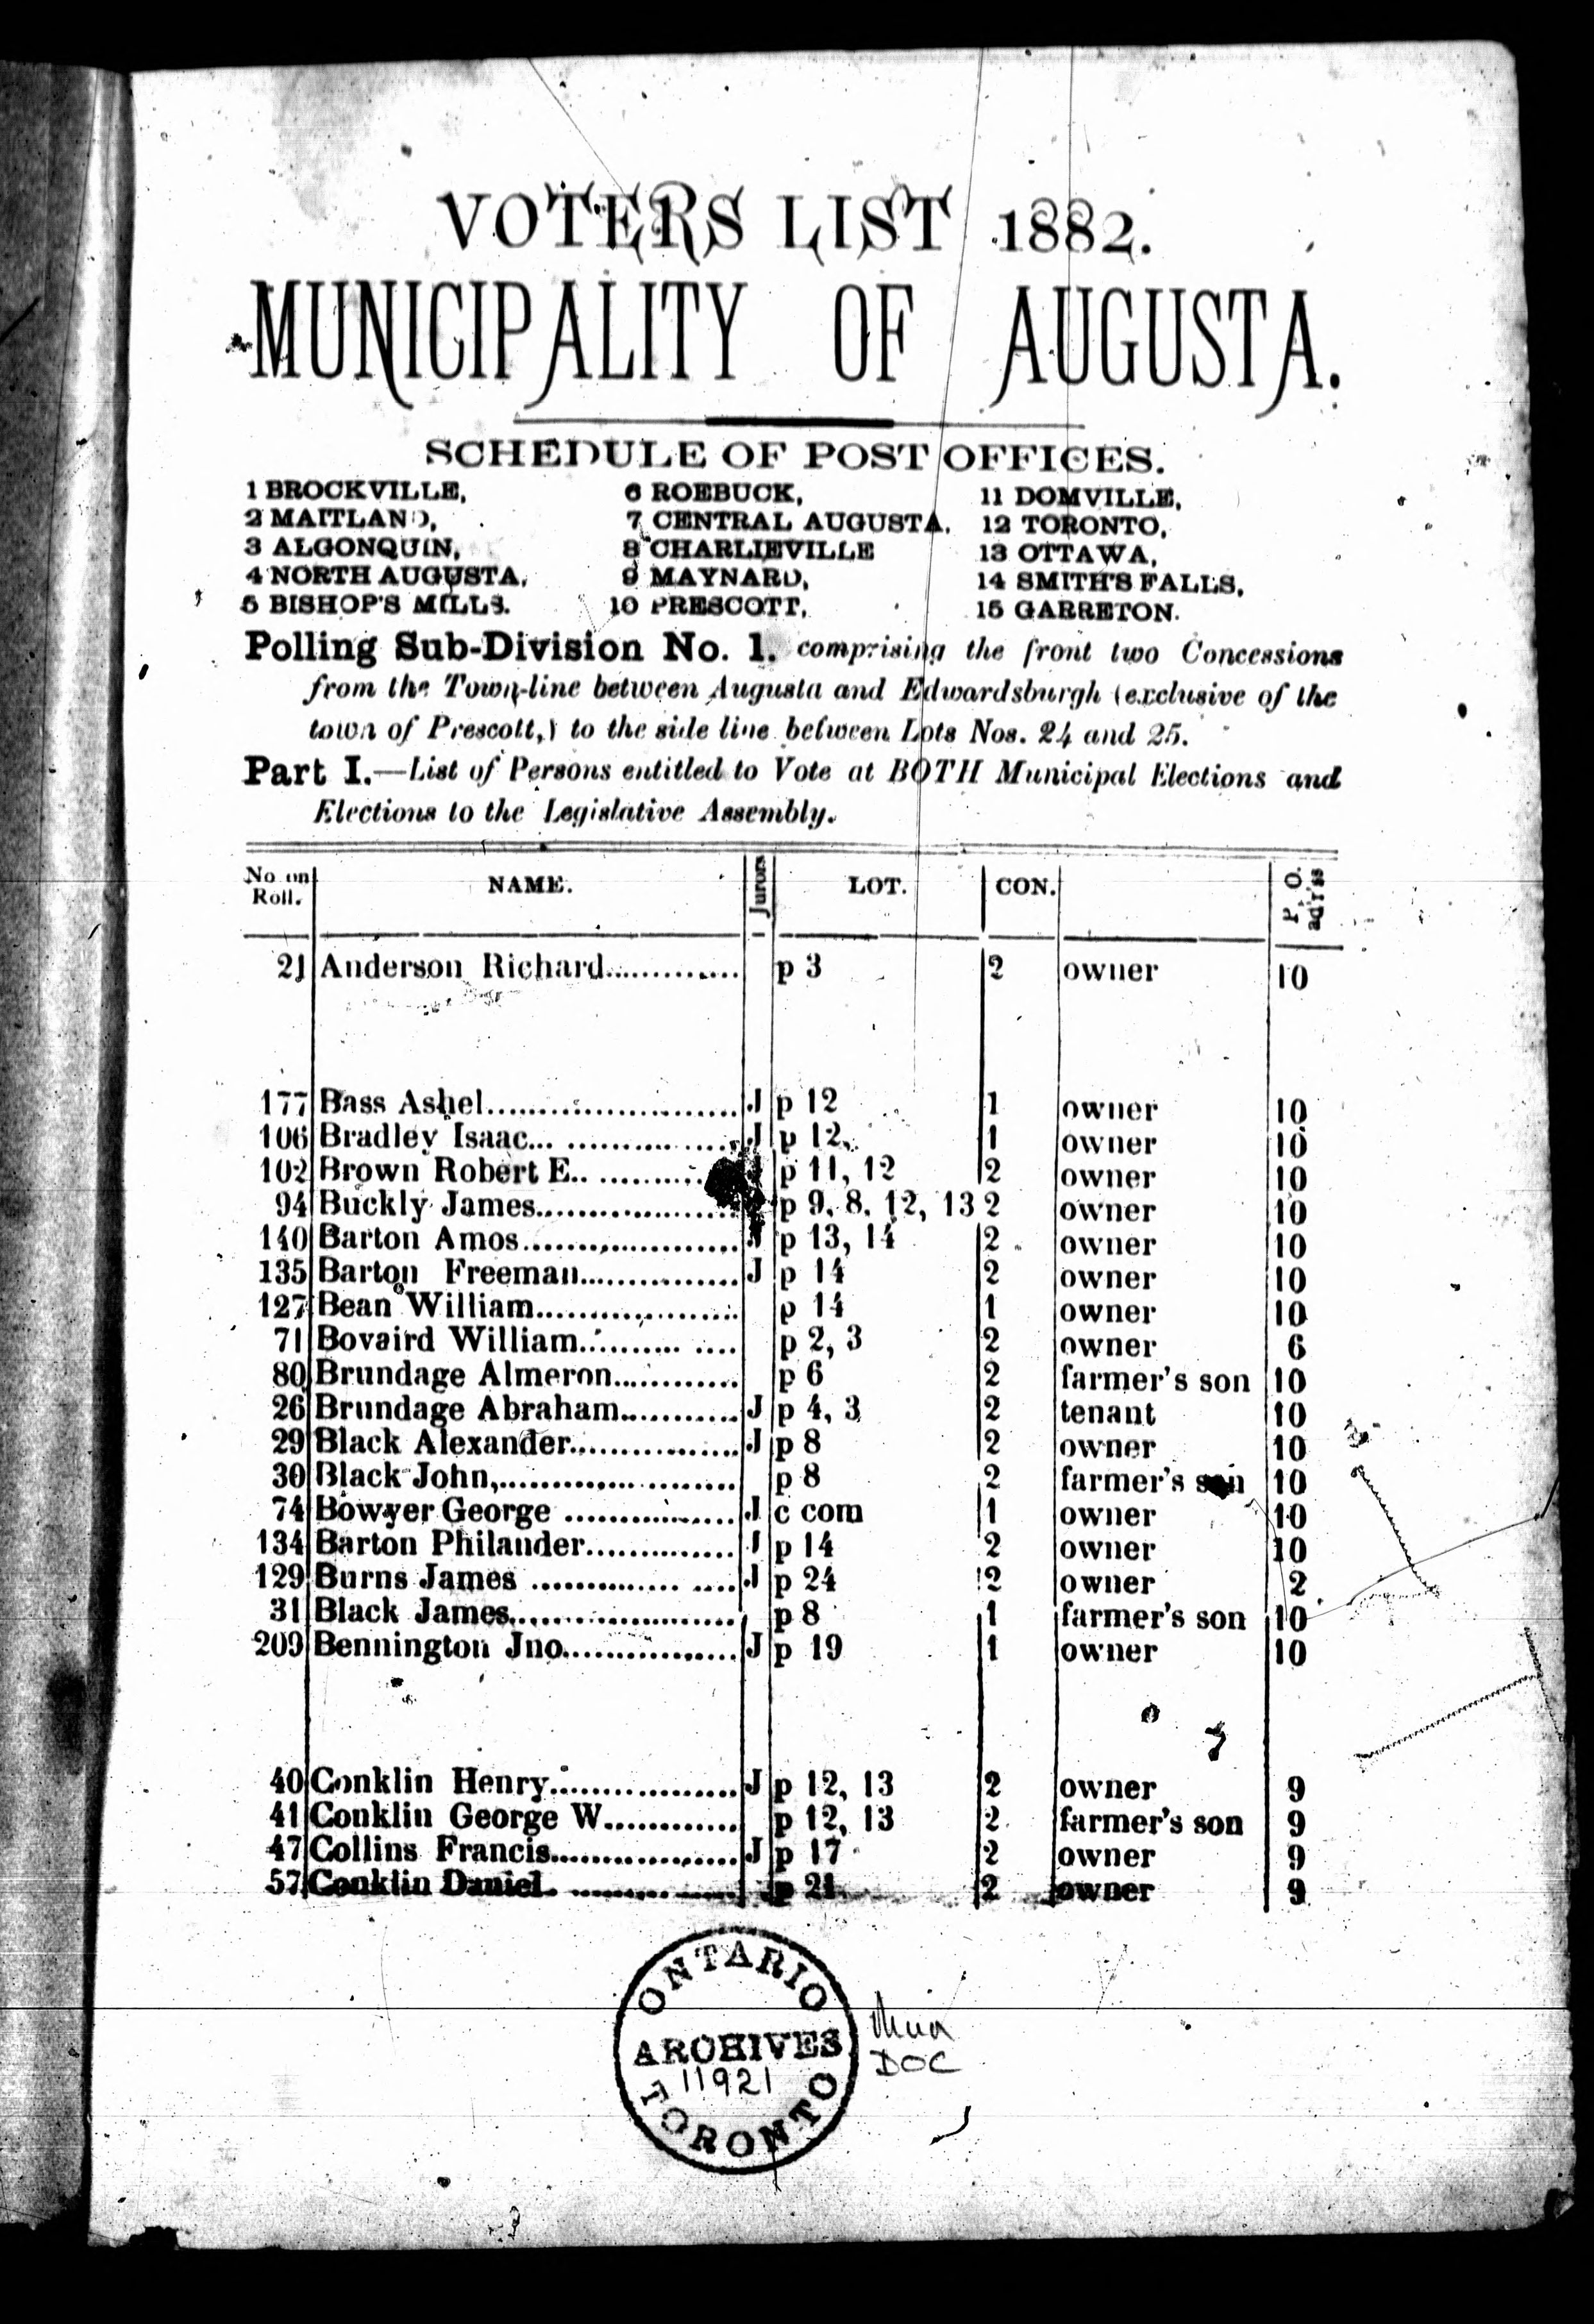 VOTERS LIST 1882.
MUNICIPALITY OF AUGUSTA.
SCHEDULE OF POST OFFICES.
1 BROCKVILLE, 6 ROEBUCK, 11 DOMVILLE,
2 MAITLAND, 7 CENTRAL AUGUSTA, 12 TORONTO,
3 ALGONQUIN, 8 CHARLIEVILLE 13 OTTAWA,
4 NORTH AUGUSTA, 9 MAYNARD, 14 SMITH'S FALLS,
5 BISHOP'S MILLS. 10 PRESCOTT, 15 GARRETON.
Polling Sub-Division No. 1. comprising the front two Concessions
from the Town-line between Augusta and Edwardsburgh (exclusive of the
town of Prescott,) to the side line between Lots Nos. 24 and 25.
Part I.—List of Persons entitled to Vote at BOTH Municipal Elections and
Elections to the Legislative Assembly.
No on Roll. NAME. Jurors LOT. CON. P. O. ad'r'ss
21 Anderson Richard............. p 3 2 owner 10
177 Bass Ashel......................... J p 12 1 owner 10
106 Bradley Isaac... ................. J p 12. 1 owner 10
102 Brown Robert E.. ........... p 11, 12 2 owner 10
94 Buckly James.................... p 9, 8, 12, 13 2 owner 10
140 Barton Amos..................... J p 13, 14 2 owner 10
135 Barton Freeman............... J p 14 2 owner 10
127 Bean William.................... p 14 1 owner 10
71 Bovaird William........... .... p 2, 3 2 owner 6
80 Brundage Almeron............ p 6 2 farmer's son 10
26 Brundage Abraham........... J p 4, 3 2 tenant 10
29 Black Alexander................ J p 8 2 owner 10
30 Black John,............... ......... p 8 2 farmer's son 10
74 Bowyer George ................. J c com 1 owner 10
134 Barton Philander.............. J p 14 2 owner 10
129 Burns James ............... .... J p 24 2 owner 2
31 Black James....................... p 8 1 farmer's son 10
209 Bennington Jno................. J p 19 1 owner 10
40 Conklin Henry.................. J p 12, 13 2 owner 9
41 Conklin George W............. p 12, 13 2 farmer's son 9
47 Collins Francis.................. J p 17 2 owner 9
57 Conklin Daniel. .................. p 21 2 owner 9
ONTARIO
ARCHIVES
11921
TORONTO
DOC